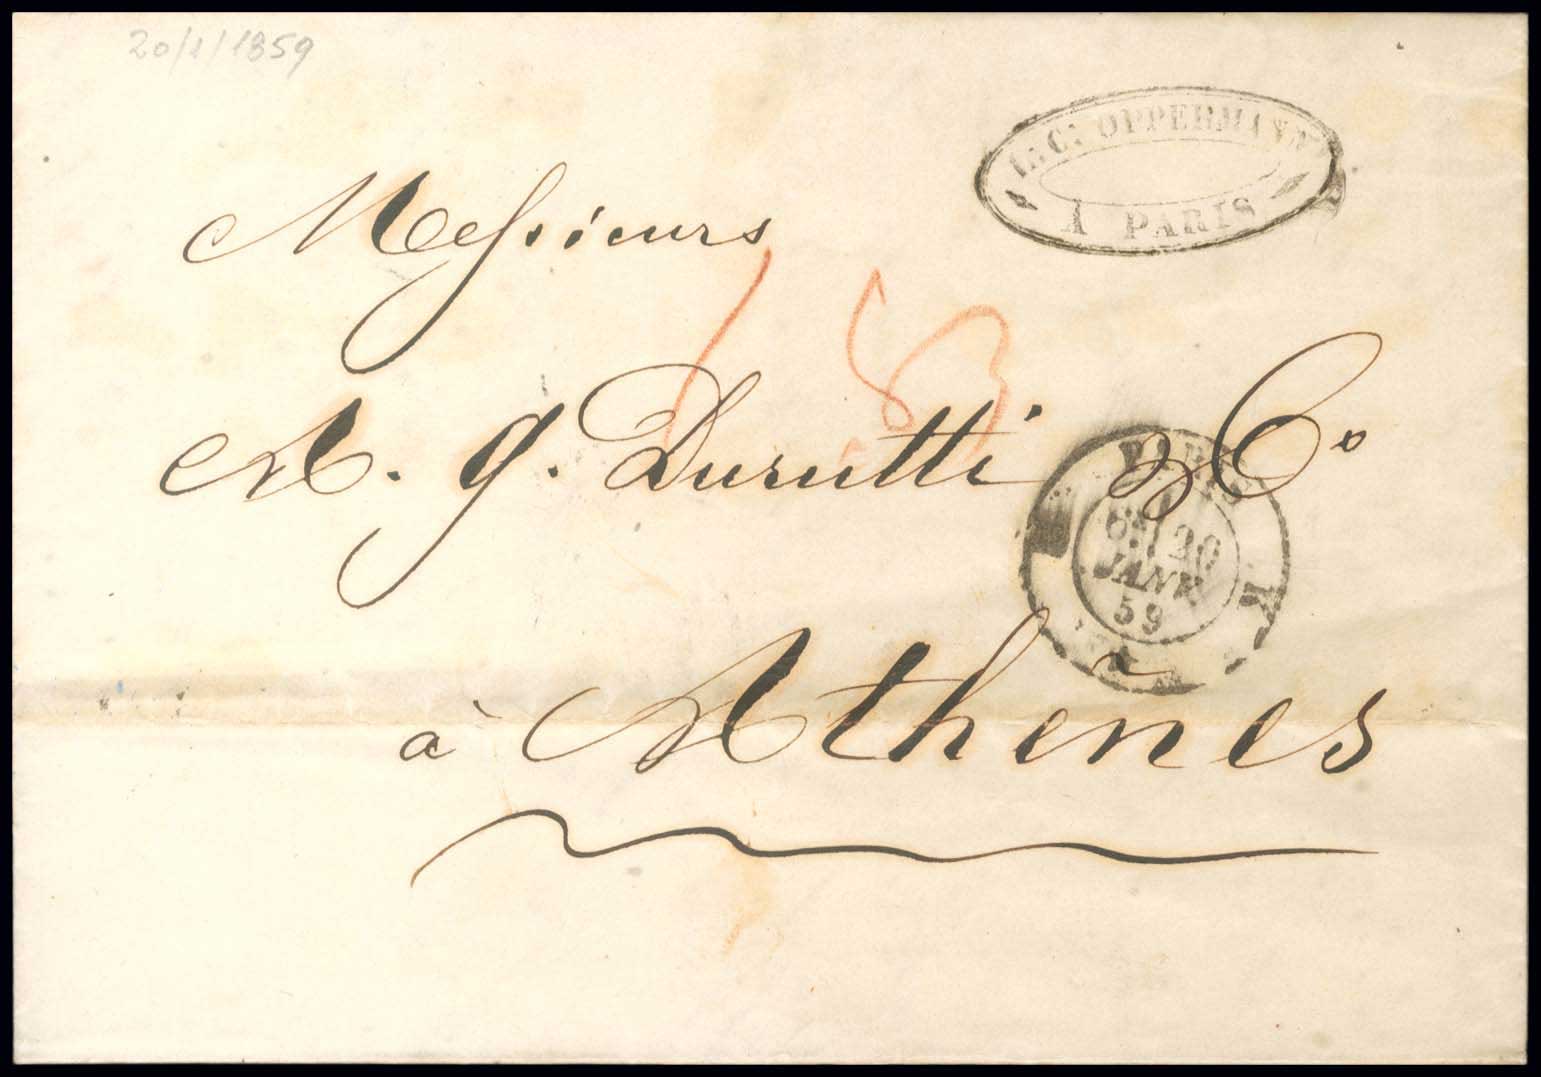 20/1/1859
C. OPPERMANN
À PARIS
Messieurs
183
A. G. Durutti & Co
PARIS
6E 20
JANV.
59
K
à Athènes